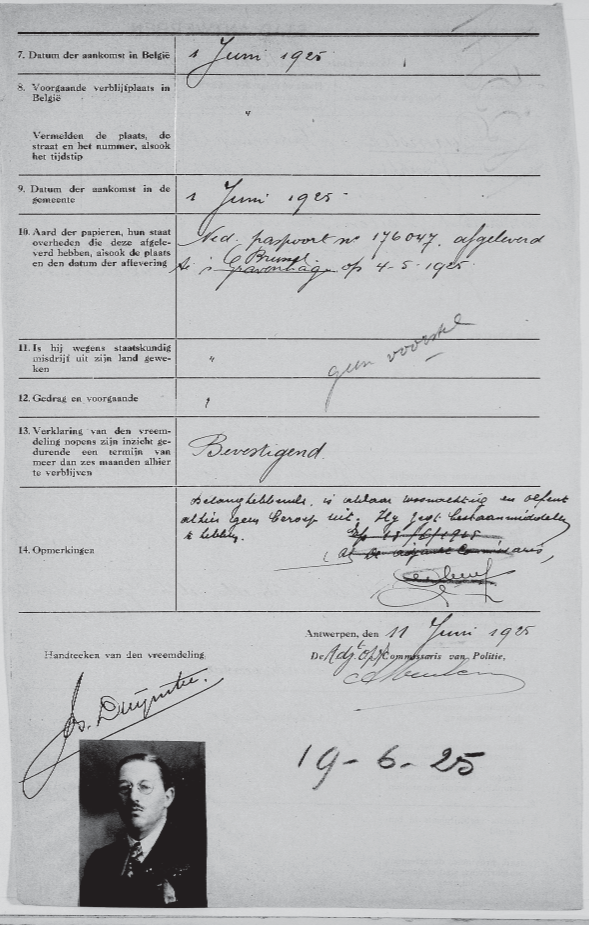 7. Datum der aankomst in België 1 Juni 1925
8. Voorgaande verblijfplaats in
België "
Vermelden de plaats, de
straat en het nummer, alsook
het tijdstip
9. Datum der aankomst in de
gemeente 1 Juni 1925
10. Aard der papieren, hun staat
overheden die deze afgele-
verd hebben, alsook de plaats
en den datum der aflevering
Ned. paspoort no 176047, afgeleverd
Brussel
te 's Gravenhage op 4-5-1925.
11. Is hij wegens staatskundig
misdrijf uit zijn land gewe-
ken "
geen voorstel
12. Gedrag en voorgaande
13. Verklaring van den vreem-
deling nopens zijn inzicht ge-
durende een termijn van
meer dan zes maanden alhier
te verblijven
Bevestigend.
14. Opmerkingen
Belanghebbende is aldaar woonachtig en oefent
alhier geen beroep uit. Hij zegt bestaanmiddelen
te hebben.
Antwerpen, den 11 Juni 1925
Handteeken van den vreemdeling
De Adjt Commissaris van Politie,
19-6-25